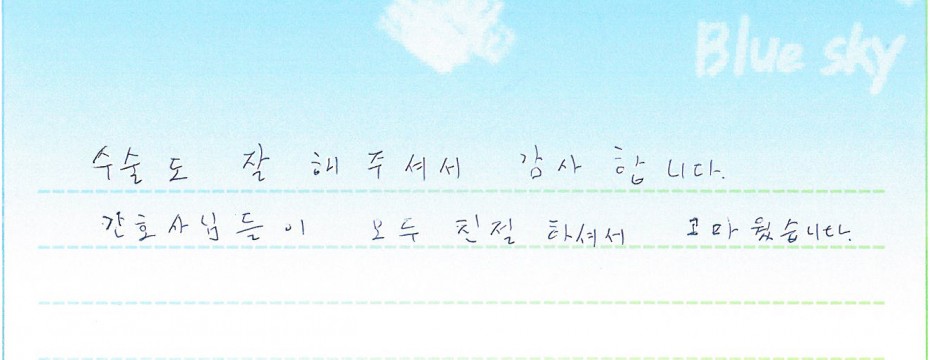 Blue sky
수술도 잘 해주셔서 감사합니다.
간호사님들이 모두 친절하셔서 고마웠습니다.